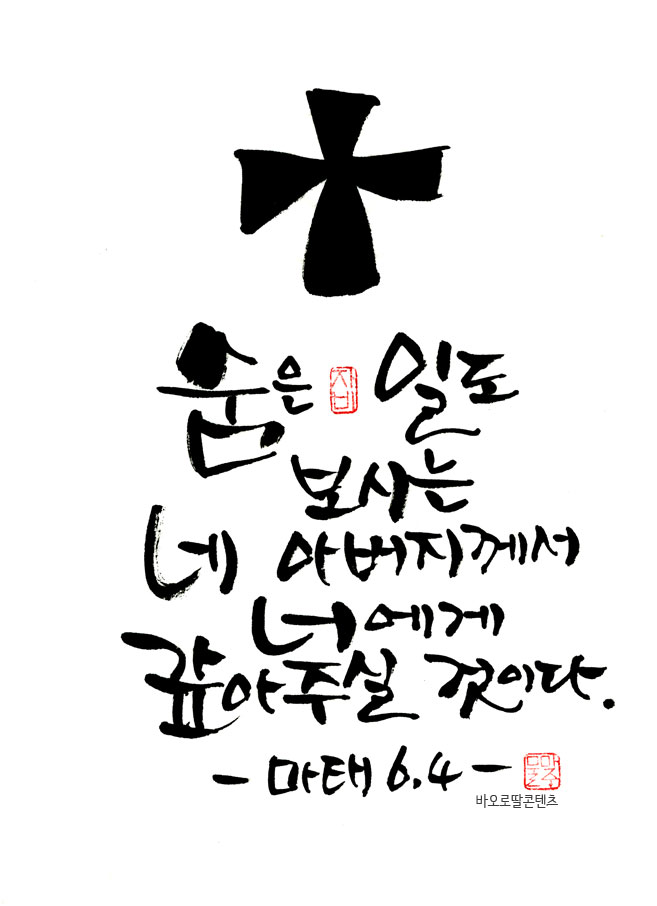 숨은 자비 일도
보시는
네 아버지께서
너에게
갚아주실 것이다.
- 마태 6.4 -
바오로딸콘텐츠